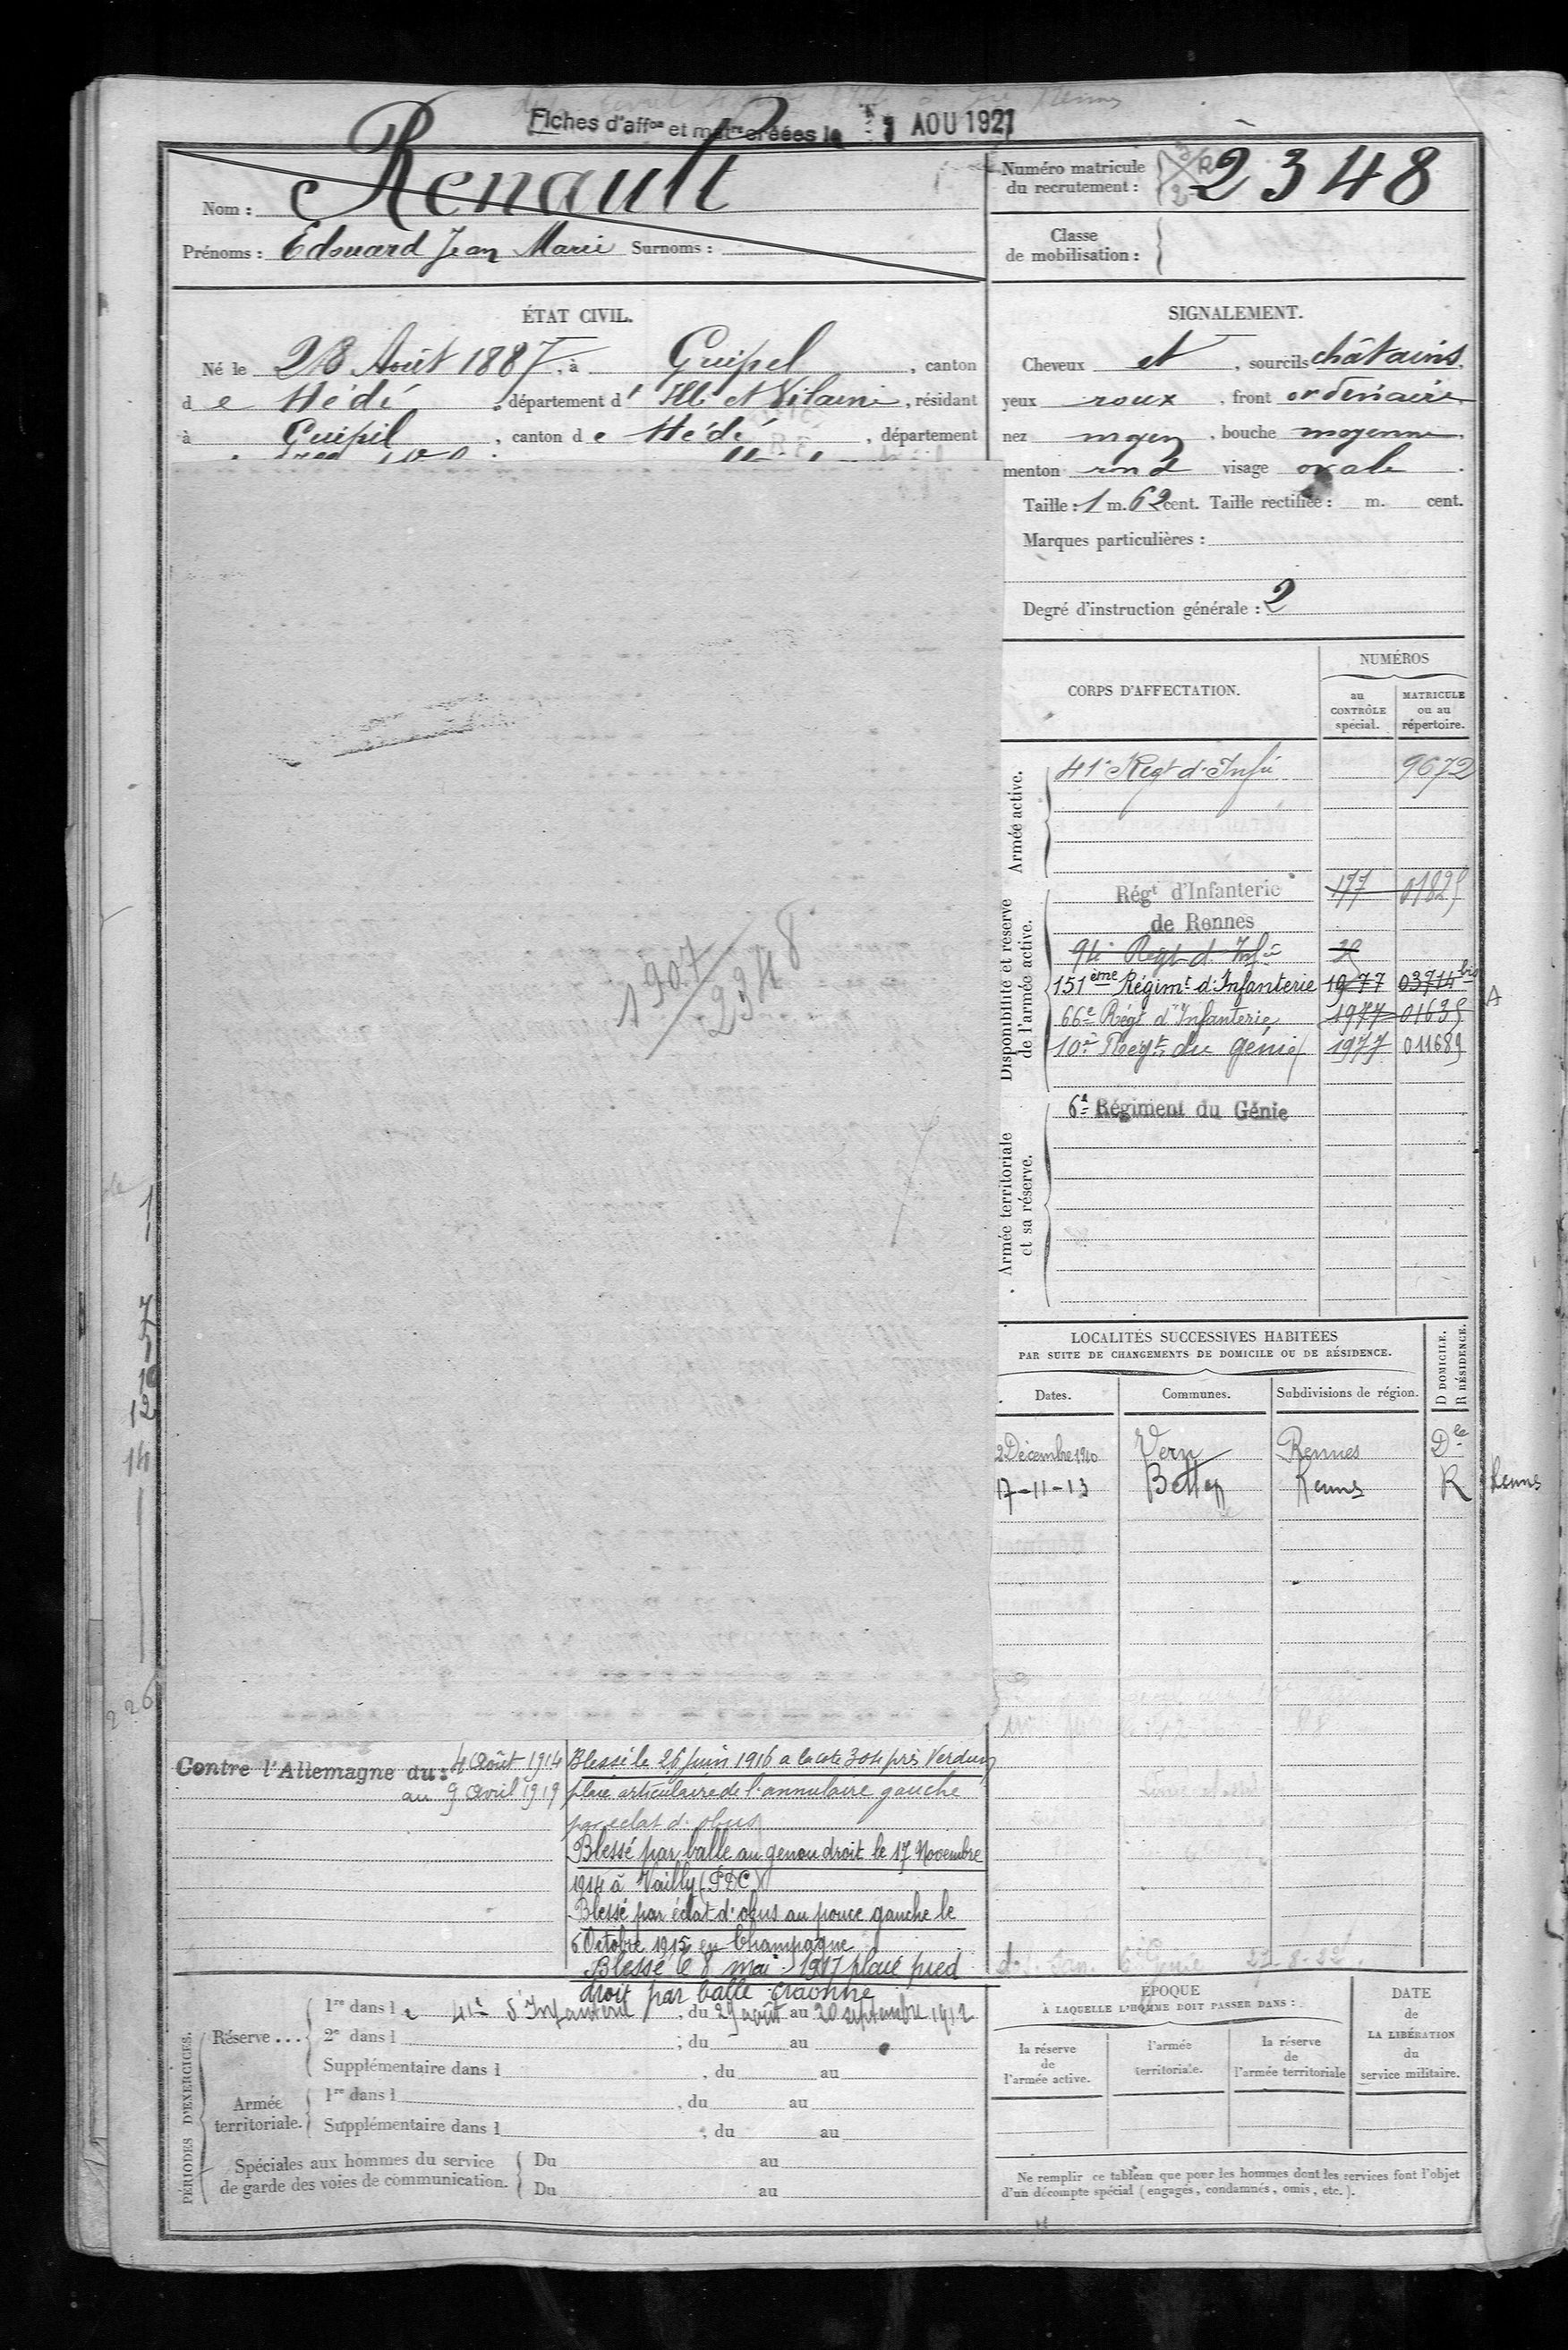 Fiches d'affon et matre créées le AOU 1921
Nom : Renault
Prénoms : Edouard Jean Marie Surnoms :
Numéro matricule
du recrutement : 2348
Classe
de mobilisation :
ÉTAT CIVIL.
Né le 28 Août 1887, à Guipel, canton
de Hédé, département d'Ille et Vilaine, résidant
à Guipel, canton de Hédé, département
SIGNALEMENT.
Cheveux et, sourcils châtains,
yeux roux, front ordinaire
nez moyen, bouche moyenne,
menton rond visage ovale.
Taille : 1 m. 62 cent. Taille rectifiée : m. cent.
Marques particulières :
Degré d'instruction générale : 2
1907/2348
CORPS D'AFFECTATION.
NUMÉROS
au
CONTRÔLE
spécial.
MATRICULE
ou au
répertoire.
Armée active.
41e Regt d'Infie 9672
Disponibilité et réserve
de l'armée active.
Régt d'Infanterie 177 01825
de Rennes
94e Regt d'Infie
151ème Régimt d'Infanterie 1977 03714 bis
A
66e Régt d'Infanterie 1977 01635
10e Régt du génie 1977 011689
Armée territoriale
et sa réserve.
6e Régiment du Génie
LOCALITÉS SUCCESSIVES HABITÉES
PAR SUITE DE CHANGEMENTS DE DOMICILE OU DE RÉSIDENCE.
D DOMICILE.
R RÉSIDENCE.
Dates. Communes. Subdivisions de région.
2 Décembre 1910 Vern Rennes Dle
17-11-13 Betton Rennes R Rennes
Contre l'Allemagne du : 4 Août 1914
au 9 Avril 1919
Blessé le 26 juin 1916 a la cote 304 près Verdun
plaie articulaire de l'annulaire gauche
par éclat d'obus
Blessé par balle au genou droit le 17 Novembre
1914 à Vailly (PDC)
Blessé par éclat d'obus au pouce gauche le
6 Octobre 1915 en Champagne
Blessé le 8 mai 1917 plaie pied
droit par balle Craonne
PÉRIODES D'EXERCICES.
Réserve ...
1re dans le 41e d'Infanterie, du 29 août au 20 septembre 1912
2e dans l ; du au
Supplémentaire dans l , du au
Armée
territoriale.
1re dans l , du au
Supplémentaire dans l , du au
Spéciales aux hommes du service
de garde des voies de communication.
Du au
Du au
ÉPOQUE
À LAQUELLE L'HOMME DOIT PASSER DANS :
la réserve
de
l'armée active.
l'armée
territoriale.
la réserve
de
l'armée territoriale
DATE
de
LA LIBÉRATION
du
service militaire.
Ne remplir ce tableau que pour les hommes dont les services font l'objet
d'un décompte spécial (engagés, condamnés, omis, etc.).